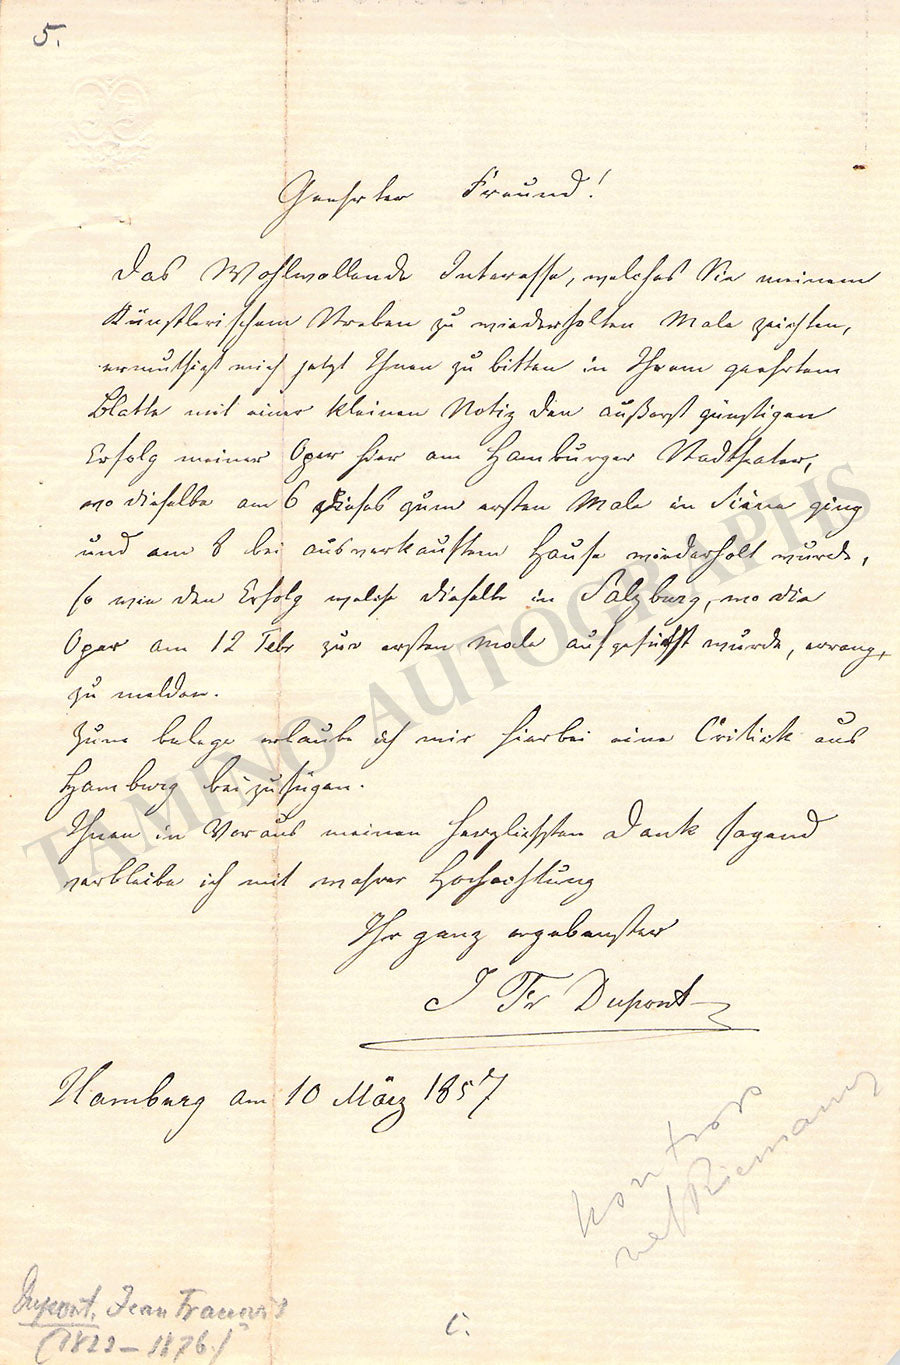 5.
Geehrter Freund!
Das Wohlwollende Interesse, welches Sie meinem
Künstlerischem Streben zu wiederholten Male zeichten,
ermuthigt mich jetzt Ihnen zu bitten in Ihrem geehrtem
Blatte mit einer kleinen Notiz den äußerst günstigen
Erfolg meiner Oper hier am Hamburger Stadtheater,
wo dieselbe am 6 dieses zum ersten Male in Scène ging
und am 8 bei ausverkauftem Hause wiederholt wurde,
so wie den Erfolg welche dieselbe in Salzburg, wo die
Oper am 12 Febr zur ersten Male aufgeführt wurde, errang,
zu melden.
Zum belege erlaube ich mir hierbei eine Critick aus
Hamburg beizufügen.
Ihnen in Voraus meinen herzlichsten Dank sagend
verbleibe ich mit wahrer Hochachtung
Ihr ganz ergebenster
J Fr Dupont
Hamburg am 10 März 1857
Riemann
Dupont, Jean François
(1822–1876)
C.
TAMINO AUTOGRAPHS